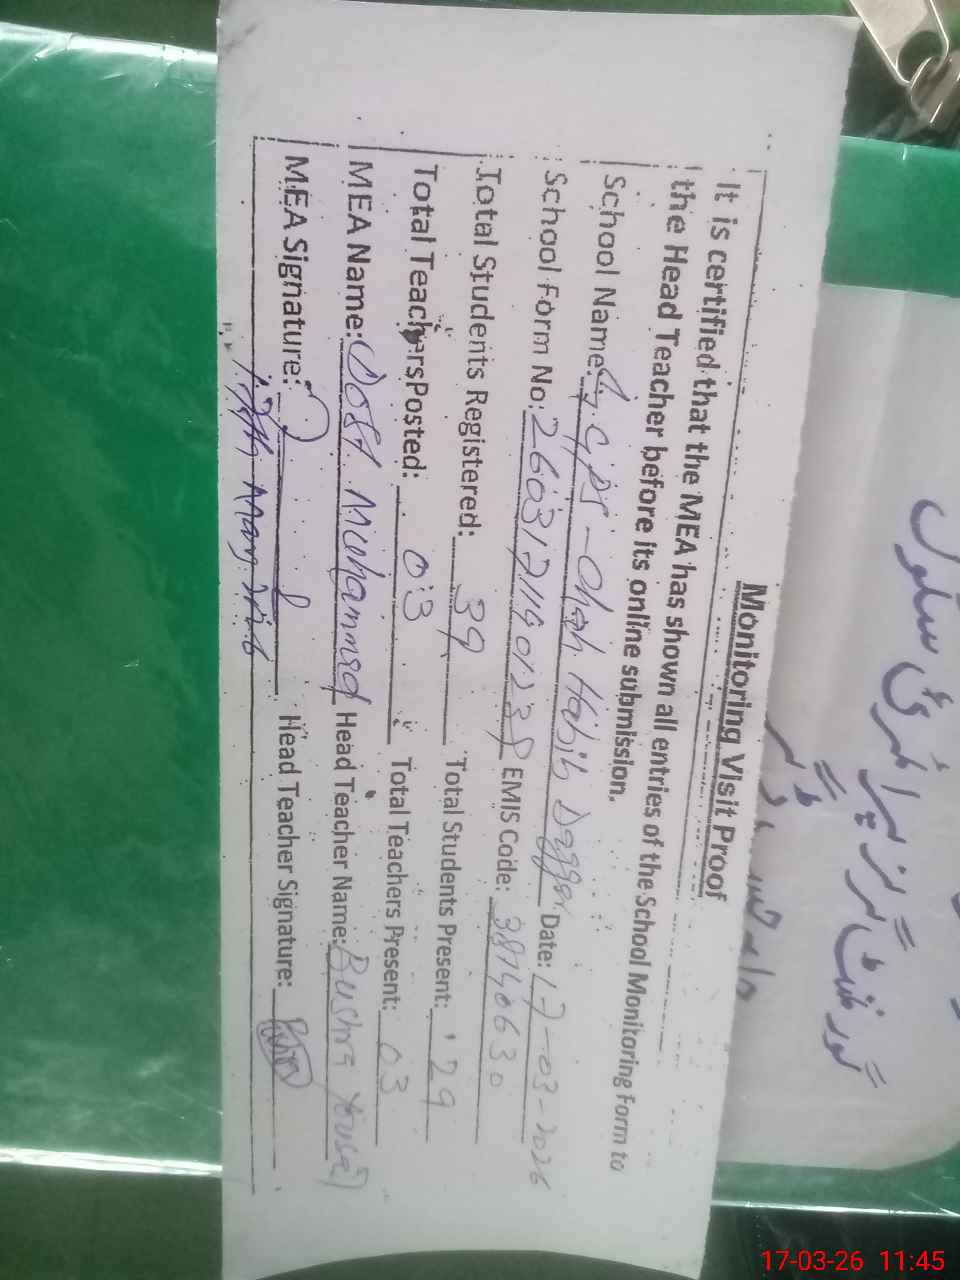 Monitoring Visit Proof
It is certified that the MEA has shown all entries of the School Monitoring Form to
the Head Teacher before its online submission.
School Name: GGPS - Chah Habib Daggar Date: 17-03-2026
School Form No: EMIS Code:
Total Students Registered: 39 Total Students Present: 29
Total Teachers Posted: 03 Total Teachers Present: 03
MEA Name: Dost Muhammad Head Teacher Name: Bushra Yousaf
MEA Signature: Head Teacher Signature:
گورنمنٹ گرلز پرائمری سکول
17-03-26 11:45